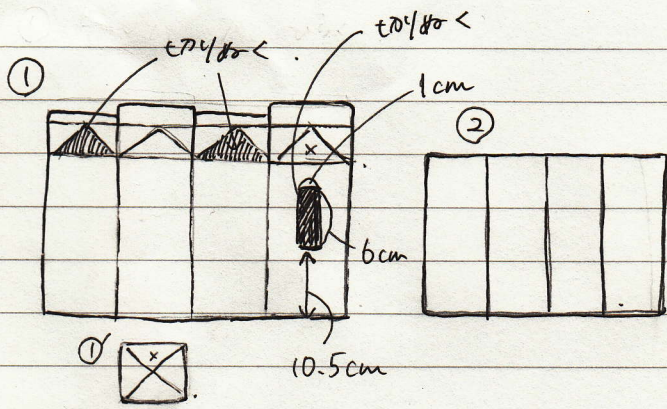 ①
切りぬく
切りぬく
1cm
②
×
6cm
10.5cm
①′
×